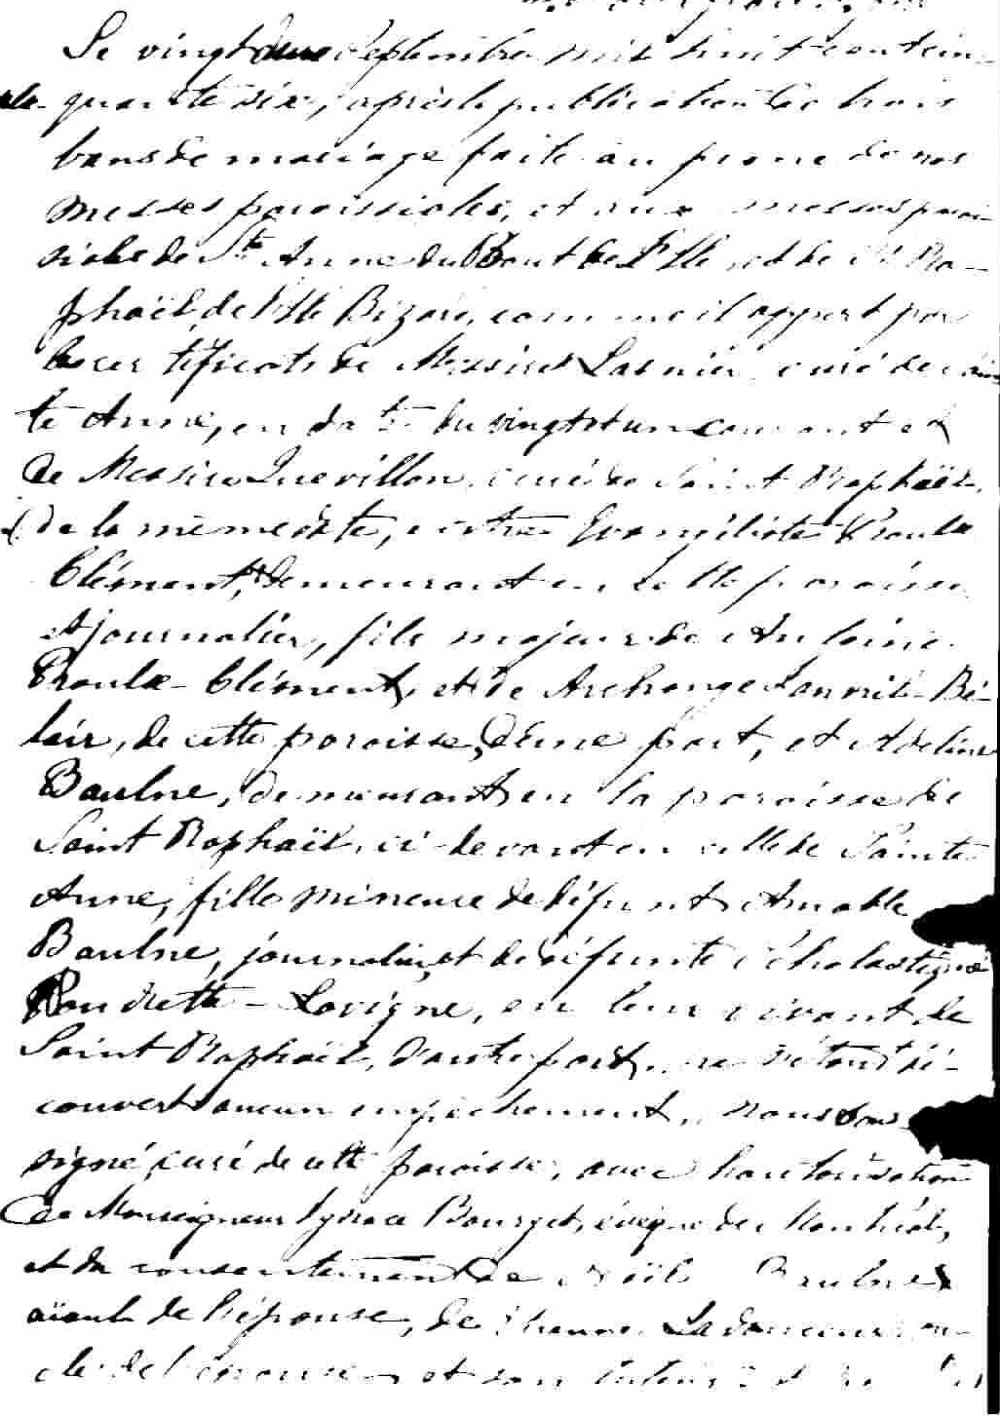 Le vingt deux Septembre mil huit cent cin-
quante six, après la publication de trois
bans de mariage faite au prone de nos
messes paroissiales, et aux messes parois-
siales de Ste Anne du Bout de l'Isle, et de St Ra-
phaël de l'Isle Bizare, comme il appert par
les certificats de Messires Lasnier, curé de Sain-
te Anne, en date du vingt et un courant et
de Messire Quevillon, curé de Saint Raphaël,
de la même date, entre Evangéliste Proulx
Clément, demeurant en cette paroisse
et journalier, fils majeur de Antoine
Proulx-Clément, et de Archange Lannié-Bé-
lair, de cette paroisse, d'une part, et Adeline
Baulne, demeurant en la paroisse de
Saint Raphaël, ci-devant en celle de Sainte
Anne, fille mineure de défunt Amable
Baulne, journalier, et de défunte Scholastique
Poudrette-Lavigne, en leur vivant de
Saint Raphaël, d'autre part, ne s'étant dé-
couvert aucun empêchement, nous sous
signé, curé de cette paroisse, avec l'autorisation
de Monseigneur Ignace Bourget, évêque de Montréal,
et du consentement de Noël Baulne
aïeul de l'épouse, de Ladouceur on-
cle de l'épouse et son tuteur